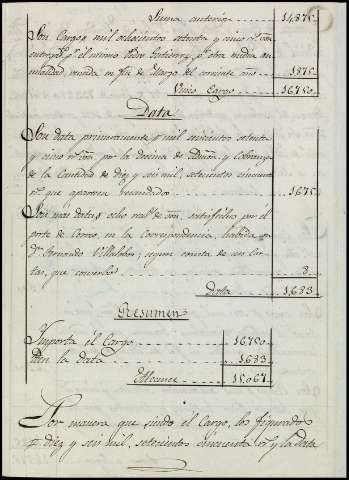 Suma anterior 14,875.
Son Cargo mil ochocientos setenta y cinco rs. vn.
entregds. pr. el mismo Pedro Gutierrez pr. otra media an-
ualidad vencida en fin de Marzo del corriente año 1875
Unico Cargo 16750.
Data
Son data primeramente mil seiscientos setenta
y cinco rs. vn. por la decima de admon. y Cobranza
de la Cantidad de diez y seis mil, setecientos cincuenta
rs. que aparecen recaudados 1675.
Son mas datas ocho rs. de von. satisfechos por el
porte de Correo, en la Correspondencia, habida con
Dn. Fernando Villalobos; segun consta de sus Car-
tas, que conservo 8.
Data 1,683
Resumen
Importa el Cargo 16750.
Ydn la data 1683
Alcance 15,067.
Por manera que siendo el Cargo, los figurados
diez y seis mil, setecientos cincuenta rs. y la data